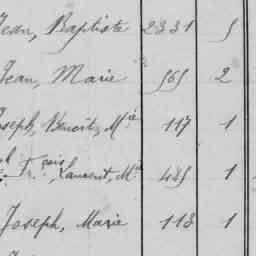 Jean, Baptiste 2331 5
Jean, Marie 565 2
Joseph, Benoit, Mie 117 1
Fçois, Laurent, M 485 1
Joseph, Marie 118 1